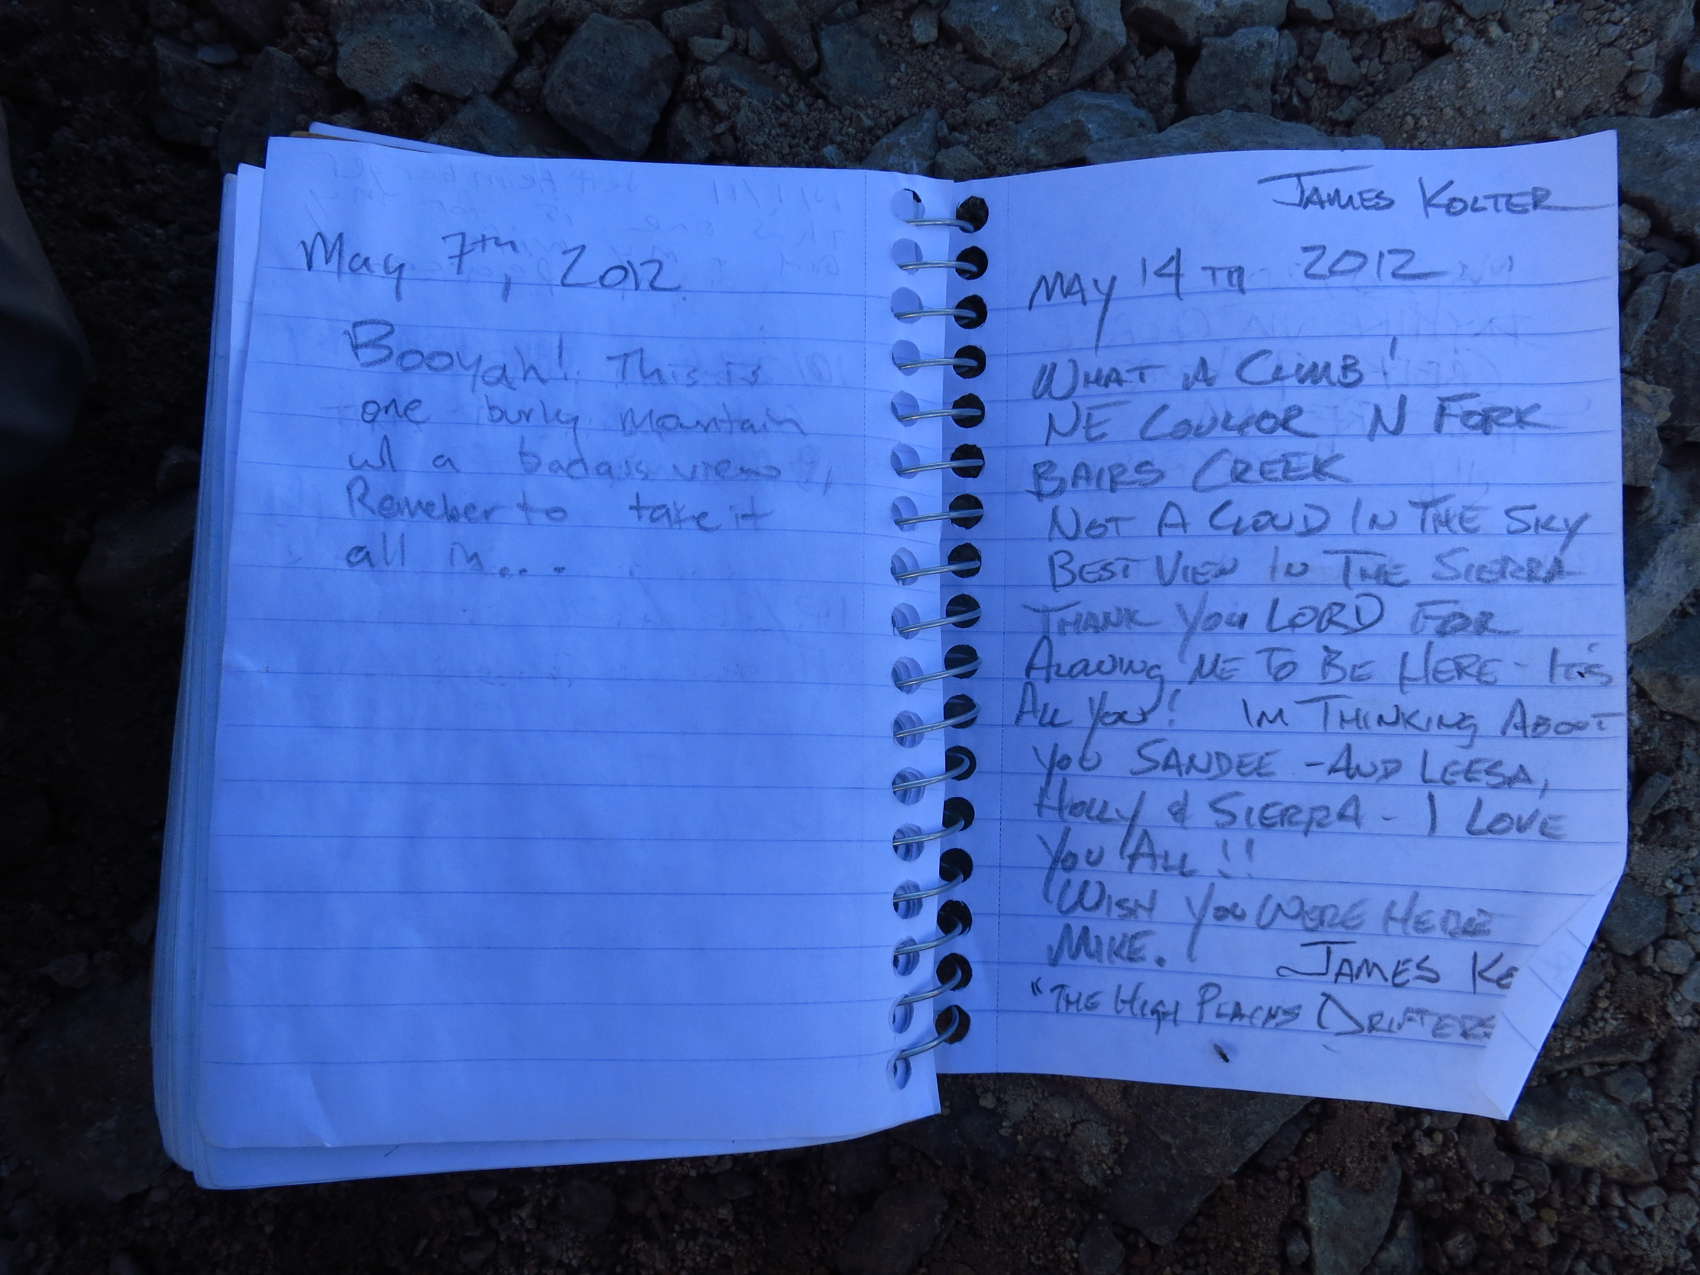 May 7th, 2012
Booyah! This is
one burly mountain
w/ a badass view,
Remeber to take it
all in...
JAMES KOLTER
MAY 14TH 2012
WHAT A CLIMB!
NE COULIOR N FORK
BAIRS CREEK
NOT A CLOUD IN THE SKY
BEST VIEW IN THE SIERRA
THANK YOU LORD FOR
ALOWING ME TO BE HERE - IT'S
ALL YOU! IM THINKING ABOUT
YOU SANDEE - AND LEESA,
HOLLY & SIERRA - I LOVE
YOU ALL!!
WISH YOU WERE HERE
MIKE. JAMES KE
"THE HIGH PLAINS DRIFTERS